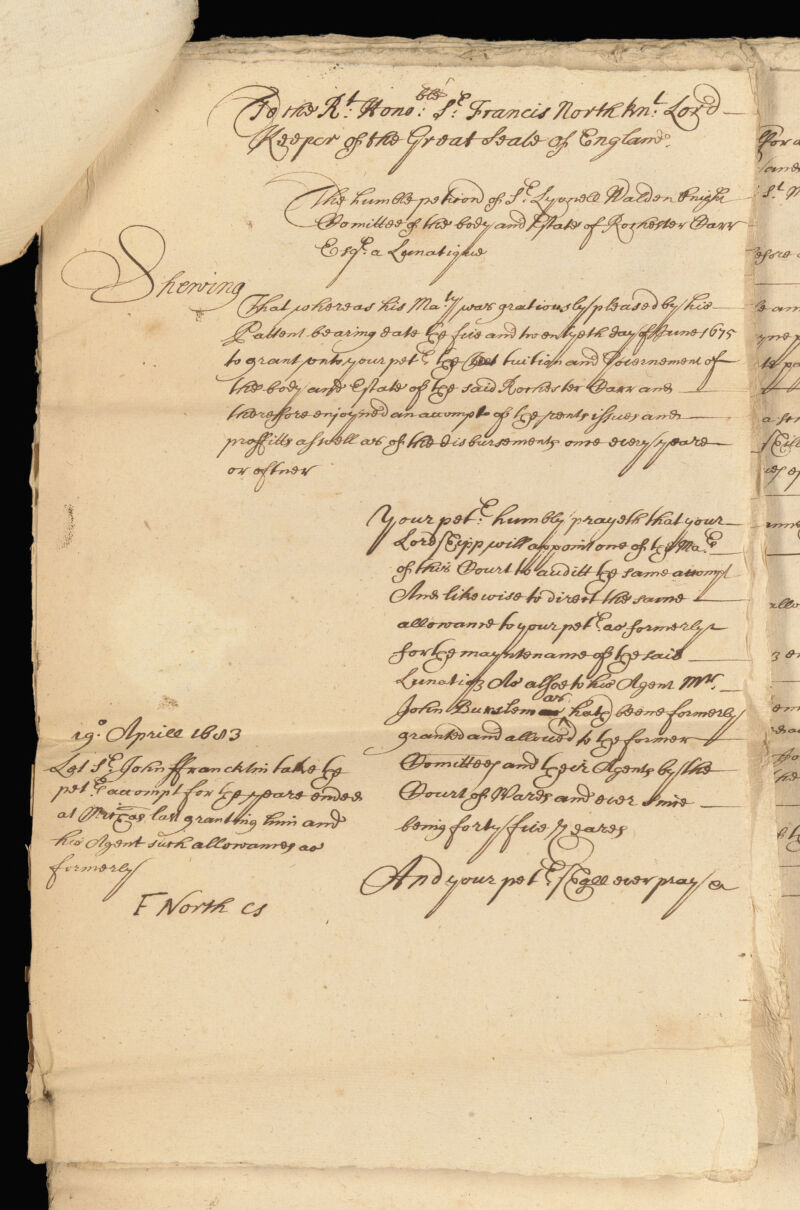 To the Rt. Honoble: Sr. Francis North Knt. Lord
Keeper of the Great Seale of England.
The humble peticion of Sr. Lyonell Walden Knight
Comittee of the body and Estate of Rochester Carr
Esqr. a Lunatique
Shewing
That whereas his Maty was gratiously pleased by his
Pattent bearing date the five and twentyeth day of June 1675
to grant vnto your petr. the tuition and Governement of
the body and Estate of the said Rochester Carr and
therefore enjoyned an accompt of the rents issues and
proffitts aswell as of the disbursements once every yeare
or oftner
Your petr. humbly prayeth that your
Lordshipp will appoint one of the Mars.
of this Court to auditt the same accompt
And likewise to direct the same
allowance to your petr. as formerly
for the mayntenance of the said
Lunatiq As alsoe to his Agent Mr.
John Burslem as hath beene formerly
granted and allowed to the former
Comittees and their Agents by the
Court of Wards and ever since
being forty five yeares
And your petr. shall ever pray &c
19o. Aprill 1683
Let Sr. John Francklin take the
petrs. accompt for the yeare ended
at Michas last granting him and
his Agent such allowances as
formerly
F North CS